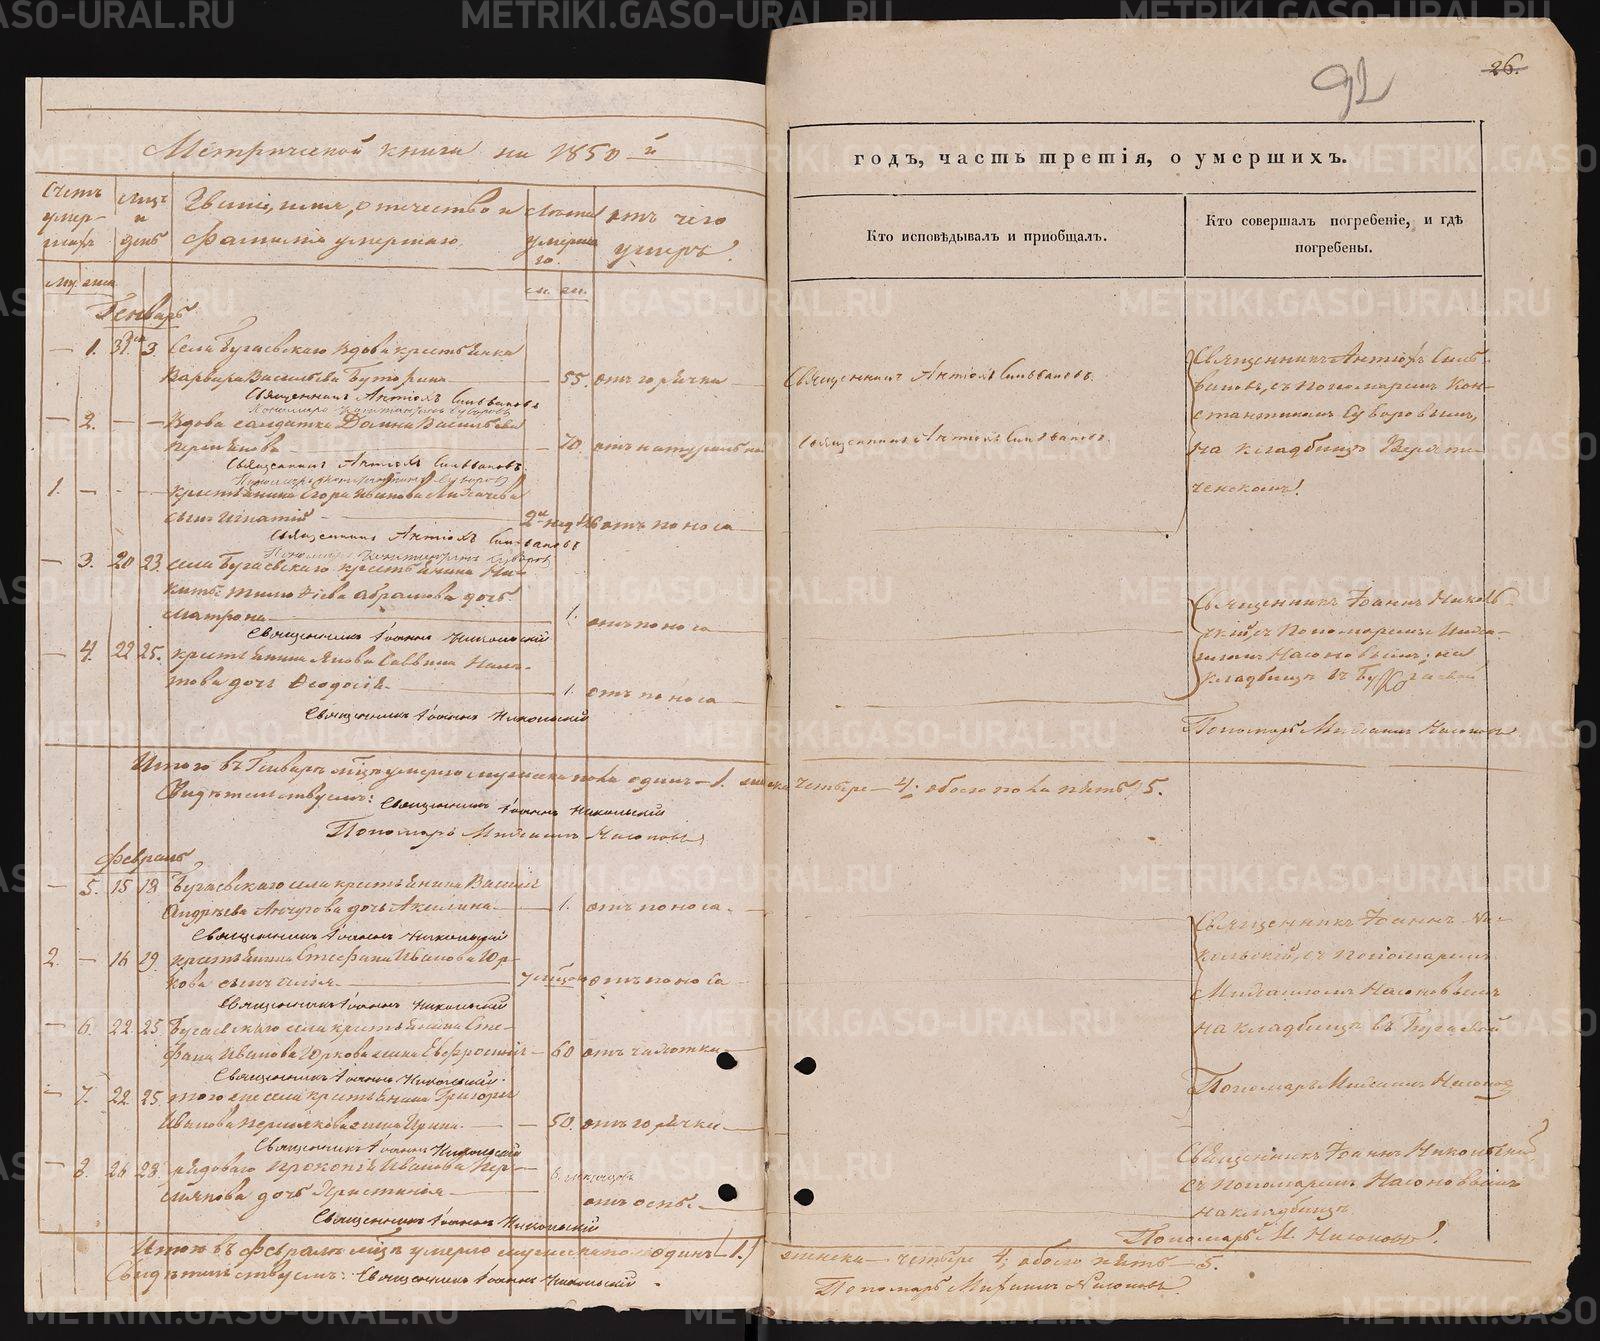 26.
92
Метрической книги на 1850-й
годъ, часть третія, о умершихъ.
Счетъ умершихъ
Мѣсяцъ и день
Званіе, имя, отчество и фамилія умершаго.
Лѣта умершаго.
отъ чего умеръ.
Кто исповѣдывалъ и пріобщалъ.
Кто совершалъ погребеніе, и гдѣ погребены.
Генварь
1. 3. Села Бугаевскаго вдова крестьянка
Варвара Васильева Буторина 55. отъ горячки
Священникъ Антіохъ Сильвановъ.
Священникъ Антіохъ Сильвановъ
Пономарь Константинъ Суворовъ
Священникъ Антіохъ Сильвановъ, съ пономаремъ Константиномъ Суворовымъ,
на кладбищѣ
2. Вдова солдатка Домна Васильева
70. отъ натуральной
Священникъ Антіохъ Сильвановъ.
Священникъ Антіохъ Сильвановъ.
Пономарь Константинъ Суворовъ
1. крестьянина Егора Иванова
сынъ Игнатій 2 нед. отъ поноса
Священникъ Антіохъ Сильвановъ
Пономарь Константинъ Суворовъ
3. 20 23. села Бугаевскаго крестьянина Ни-
киты Тимофѣева Абрамова дочь
Матрона 1. отъ поноса
Священникъ Іоаннъ Никольскій
Священникъ Іоаннъ Николь-
скій съ пономаремъ Миха-
иломъ Насоновымъ, на
кладбищѣ въ
4. 22 25. крестьянина Якова Саввина
дочь Ѳеодосія 1. отъ поноса
Священникъ Іоаннъ Никольскій
Пономарь Михаилъ Насоновъ
Итого въ Генварѣ мцѣ умерло мужеска пола одинъ – 1. женска четыре – 4; обоего пола пять 5.
Свидѣтельствуемъ: Священникъ Іоаннъ Никольскій
Пономарь Михаилъ Насоновъ
Февраль
5. 15 18 Бугаевскаго села крестьянина Василія
Андрѣева дочь Акилина 1. отъ поноса.
Священникъ Іоаннъ Никольскій
Священникъ Іоаннъ Ни-
кольскій, съ пономаремъ
Михаиломъ Насоновымъ
на кладбищѣ въ
2. 16 19 крестьянина Стефана Иванова Юр-
кова сынъ 7 мцовъ отъ поноса
Священникъ Іоаннъ Никольскій
6. 22. 25. Бугаевскаго села крестьянина Сте-
фана Иванова Юркова жена Евфросинія 60 отъ чахотки
Священникъ Іоаннъ Никольскій.
Пономарь Михаилъ Насоновъ
7. 22. 25. того же села крестьянина Григорія
Иванова Пермякова жена Ирина 50. отъ горячки
Священникъ Іоаннъ Никольскій
Священникъ Іоаннъ Никольскій
съ пономаремъ Насоновымъ
на кладбищѣ
8. 26 28. Прокопія Иванова Пер-
мякова дочь Христинія 6. мѣсяцовъ отъ оспы.
Священникъ Іоаннъ Никольскій
Пономарь М. Насоновъ
Итого въ Февралѣ мцѣ умерло мужеска пола одинъ (1.) женска – четыре 4; обоего пять – 5.
Свидѣтельствуемъ: Священникъ Іоаннъ Никольскій.
Пономарь Михаилъ Насоновъ.
METRIKI.GASO-URAL.RU